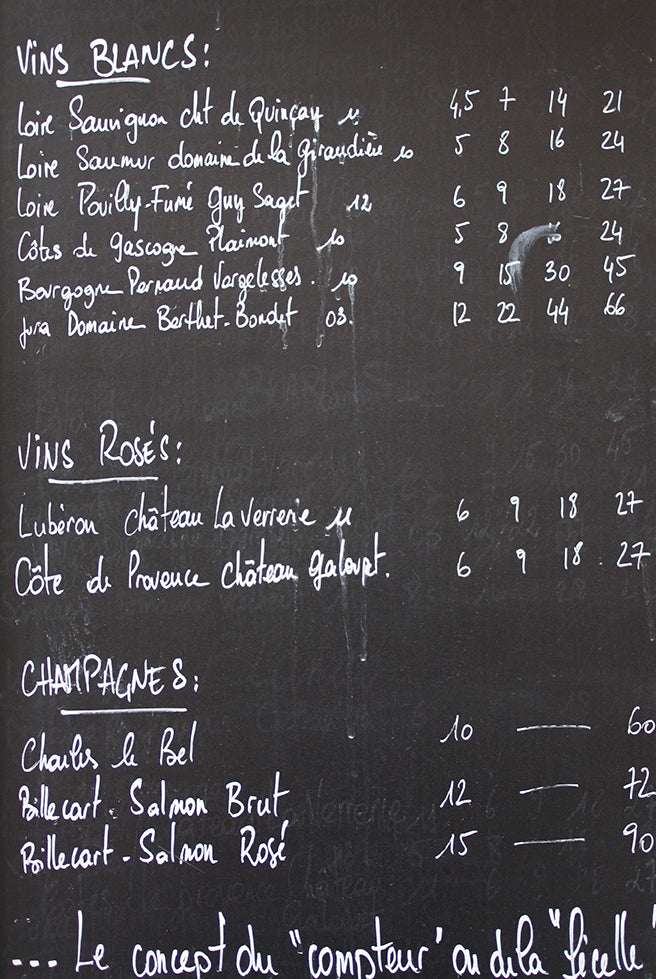 Vins BLANCS:
Loire Sauvignon cht de Quinçay 11 4,5 7 14 21
Loire Saumur domaine de la Giraudière 10 5 8 16 24
Loire Pouilly-Fumé Guy Saget 12 6 9 18 27
Côtes de Gascogne Plaimont 10 5 8 16 24
Bourgogne Pernand Vergelesses. 10 9 15 30 45
Jura Domaine Berthet-Bondet 03. 12 22 44 66
Vins Rosés:
Lubéron château La Verrerie 11 6 9 18 27
Côte de Provence château Galoupet. 6 9 18 27
CHAMPAGNES:
Charles le Bel 10 — 60
Billecart-Salmon Brut 12 — 72
Billecart-Salmon Rosé 15 — 90
... Le concept du "compteur" ou de la "ficelle"